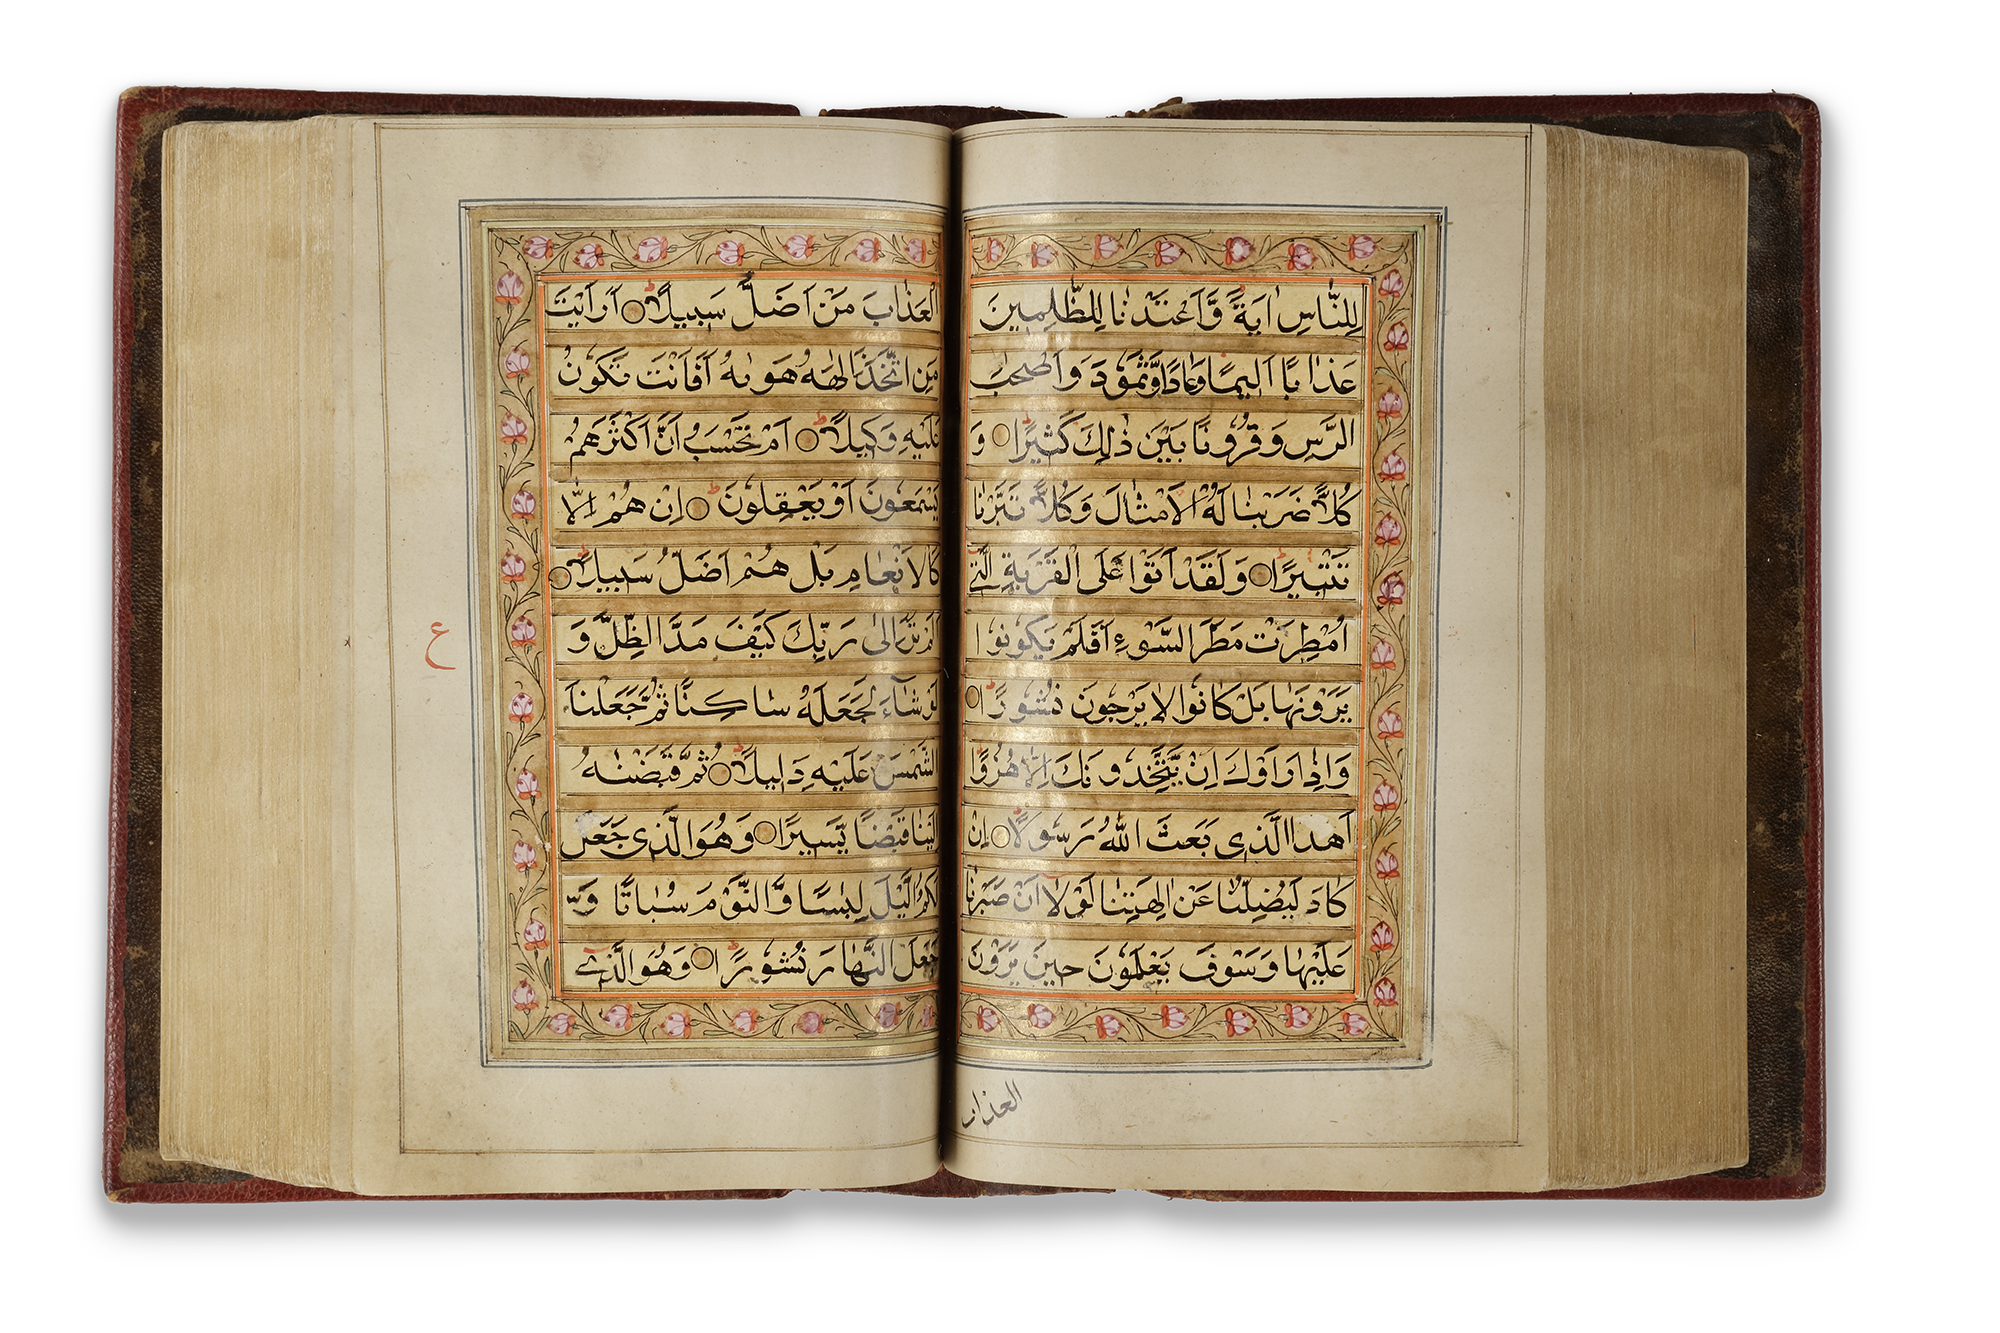 لِلنَّاسِ اٰيَةً وَّاَعْتَدْنَا لِلظّٰلِمِيْنَ
عَذَابًا اَلِيْمًا وَعَادًا وَّثَمُوْدَ وَاَصْحٰبَ
الرَّسِّ وَقُرُوْنًا بَيْنَ ذٰلِكَ كَثِيْرًا وَ
كُلًّا ضَرَبْنَا لَهُ الْاَمْثَالَ وَكُلًّا تَبَّرْنَا
تَتْبِيْرًا وَلَقَدْ اَتَوْا عَلَى الْقَرْيَةِ الَّتِيْ
اُمْطِرَتْ مَطَرَ السَّوْءِ اَفَلَمْ يَكُوْنُوْا
يَرَوْنَهَا بَلْ كَانُوْا لَا يَرْجُوْنَ نُشُوْرًا
وَاِذَا رَاَوْكَ اِنْ يَّتَّخِذُوْنَكَ اِلَّا هُزُوًا
اَهٰذَا الَّذِيْ بَعَثَ اللّٰهُ رَسُوْلًا اِنْ
كَادَ لَيُضِلُّنَا عَنْ اٰلِهَتِنَا لَوْلَا اَنْ صَبَرْنَا
عَلَيْهَا وَسَوْفَ يَعْلَمُوْنَ حِيْنَ يَرَوْنَ
العذاب
الْعَذَابَ مَنْ اَضَلُّ سَبِيْلًا اَرَاَيْتَ
مَنِ اتَّخَذَ اِلٰهَهُ هَوٰىهُ اَفَاَنْتَ تَكُوْنُ
عَلَيْهِ وَكِيْلًا اَمْ تَحْسَبُ اَنَّ اَكْثَرَهُمْ
يَسْمَعُوْنَ اَوْ يَعْقِلُوْنَ اِنْ هُمْ اِلَّا
كَالْاَنْعَامِ بَلْ هُمْ اَضَلُّ سَبِيْلًا
اَلَمْ تَرَ اِلٰى رَبِّكَ كَيْفَ مَدَّ الظِّلَّ وَ
لَوْ شَآءَ لَجَعَلَهُ سَاكِنًا ثُمَّ جَعَلْنَا
الشَّمْسَ عَلَيْهِ دَلِيْلًا ثُمَّ قَبَضْنٰهُ
اِلَيْنَا قَبْضًا يَّسِيْرًا وَهُوَ الَّذِيْ جَعَلَ
لَكُمُ الَّيْلَ لِبَاسًا وَّالنَّوْمَ سُبَاتًا وَّ
جَعَلَ النَّهَارَ نُشُوْرًا وَهُوَ الَّذِيْ
ع